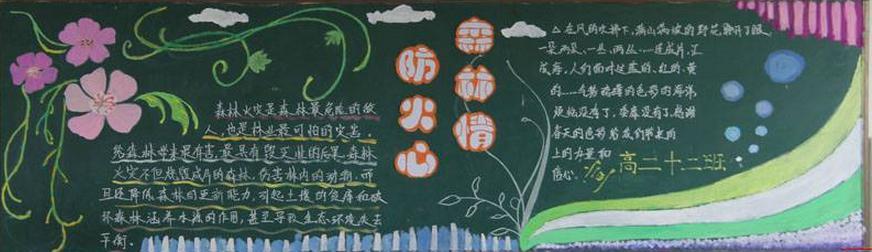 森林火灾是森林最危险的敌
人,也是林业最可怕的灾害,
给森林带来最有害,最具有毁灭性的后果。森林
火灾不但烧毁成片的森林,伤害林内的动物,而
且还降低森林的更新能力,引起土壤的贫瘠和破
坏森林涵养水源的作用,甚至导致生态环境失去
平衡。
防火心
森林情
△在风的吹拂下,满山满坡的野花睁开了眼,
一朵两朵、一丛、两丛……连成片,汇
成海,人们面对这蓝的、红的、黄
的……
春天的色彩给我们带来
上的力量和
信心。
高二十二班